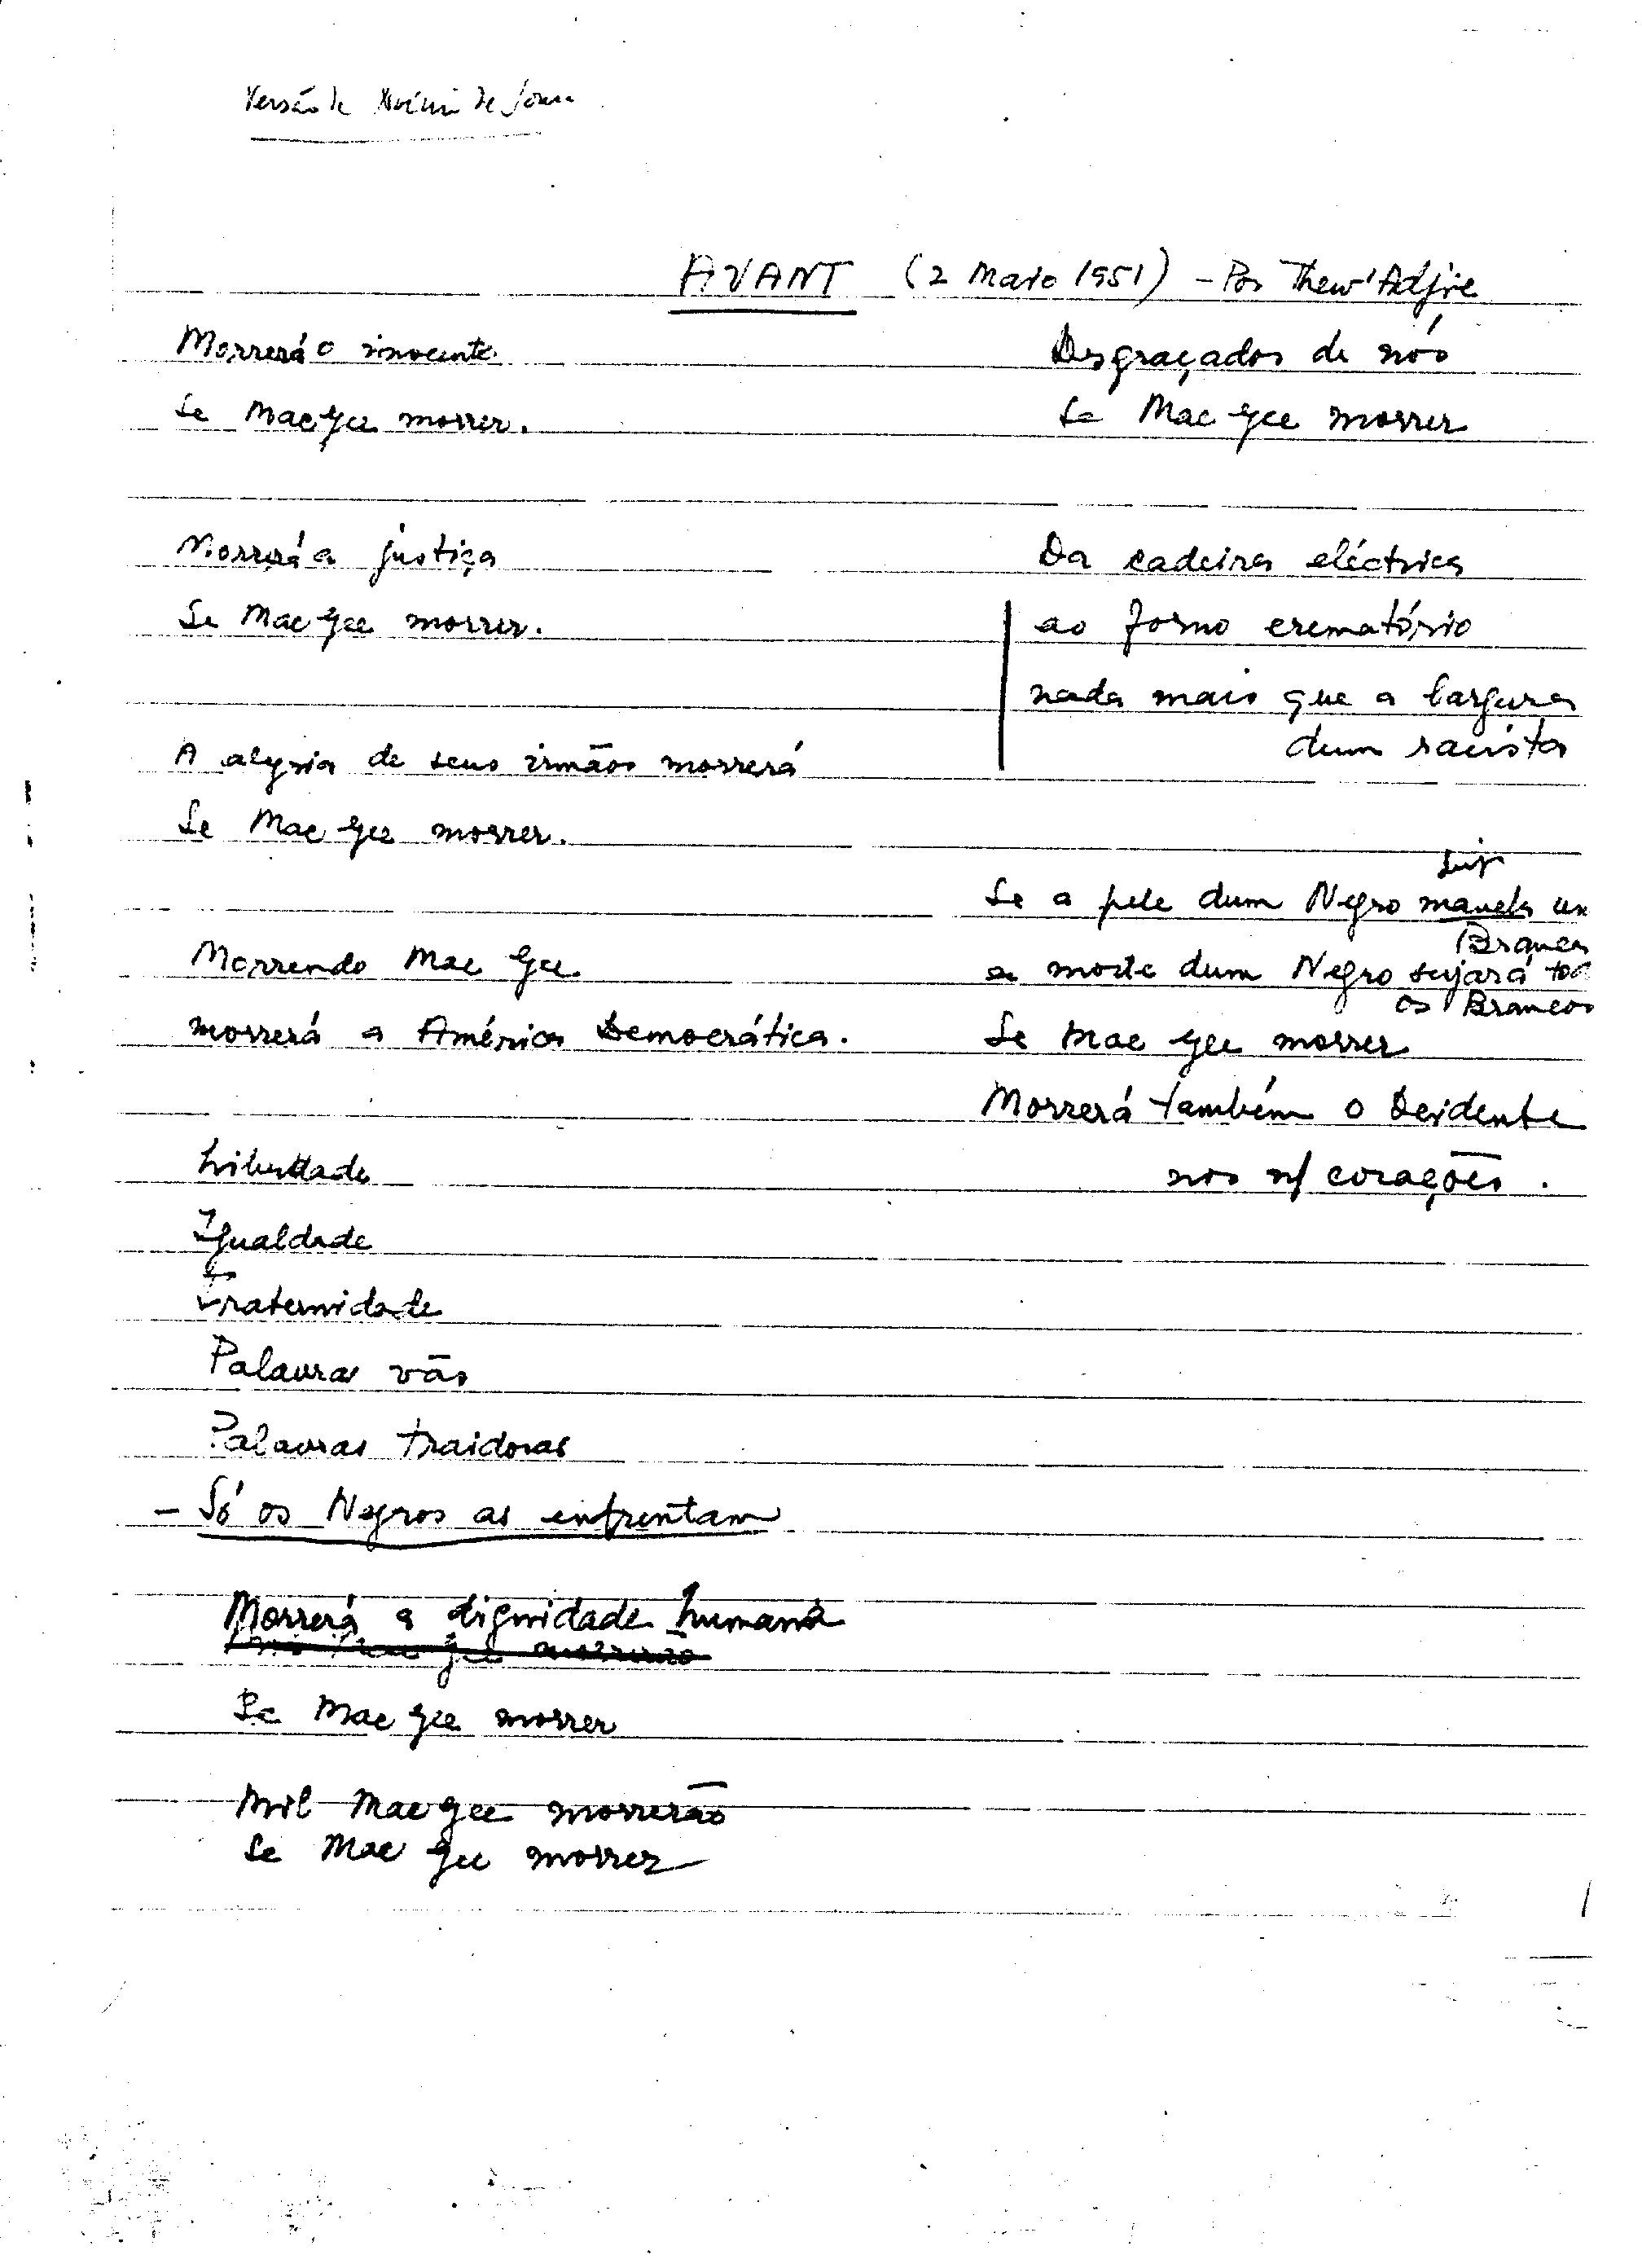 Versão de Noémia de Sousa
AVANT (2 Maio 1951) - Por Thew'Adjie
Morrerá o inocente
Se Mac Gee morrer.
Morrerá a justiça
Se Mac Gee morrer.
A alegria de seus irmãos morrerá
Se Mac Gee morrer.
Morrendo Mac Gee
morrerá a América Democrática.
Liberdade
Igualdade
Fraternidade
Palavras vãs
Palavras traidoras
- Só os Negros as enfrentam
Morrerá a dignidade humana
Se Mac Gee morrer
Mil Mac Gee morrerão
Se Mac Gee morrer
Desgraçados de nós
Se Mac Gee morrer
Da cadeira eléctrica
ao forno crematório
nada mais que a largura
dum racista
Se a pele dum Negro mancha um
Branco
a morte dum Negro sujará tod
os Brancos
Se Mac Gee morrer
Morrerá também o Ocidente
nos n/ corações.